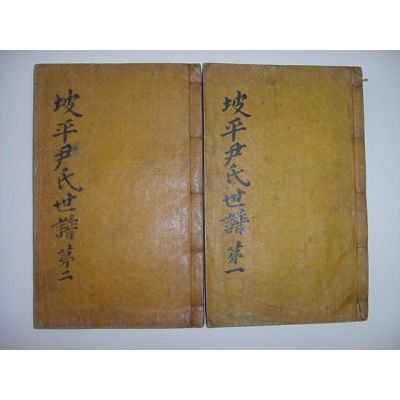 坡平尹氏世譜 第一
坡平尹氏世譜 第二